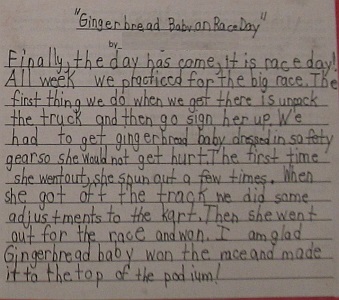 "Gingerbread Baby on Race Day"
by
Finally, the day has come, it is race day!
All week we practiced for the big race. The
first thing we do when we get there is unpack
the truck and then go sign her up. We
had to get gingerbread baby dressed in safety
gear so she would not get hurt. The first time
she went out, she spun out a few times. When
she got off the track we did some
adjustments to the kart. Then she went
out for the race and won. I am glad
Gingerbread baby won the race and made
it to the top of the podium!